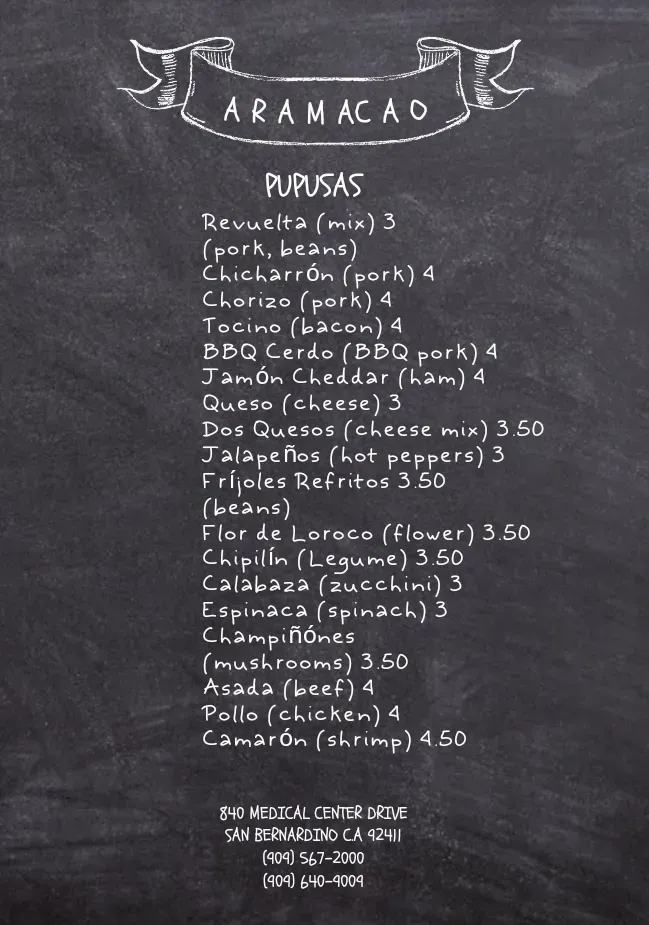 ARAMACAO
PUPUSAS
Revuelta (mix) 3
(pork, beans)
Chicharrón (pork) 4
Chorizo (pork) 4
Tocino (bacon) 4
BBQ Cerdo (BBQ pork) 4
Jamón Cheddar (ham) 4
Queso (cheese) 3
Dos Quesos (cheese mix) 3.50
Jalapeños (hot peppers) 3
Fríjoles Refritos 3.50
(beans)
Flor de Loroco (flower) 3.50
Chipilín (Legume) 3.50
Calabaza (zucchini) 3
Espinaca (spinach) 3
Champiñónes
(mushrooms) 3.50
Asada (beef) 4
Pollo (chicken) 4
Camarón (shrimp) 4.50
840 MEDICAL CENTER DRIVE
SAN BERNARDINO C.A 92411
(909) 567-2000
(909) 640-9009